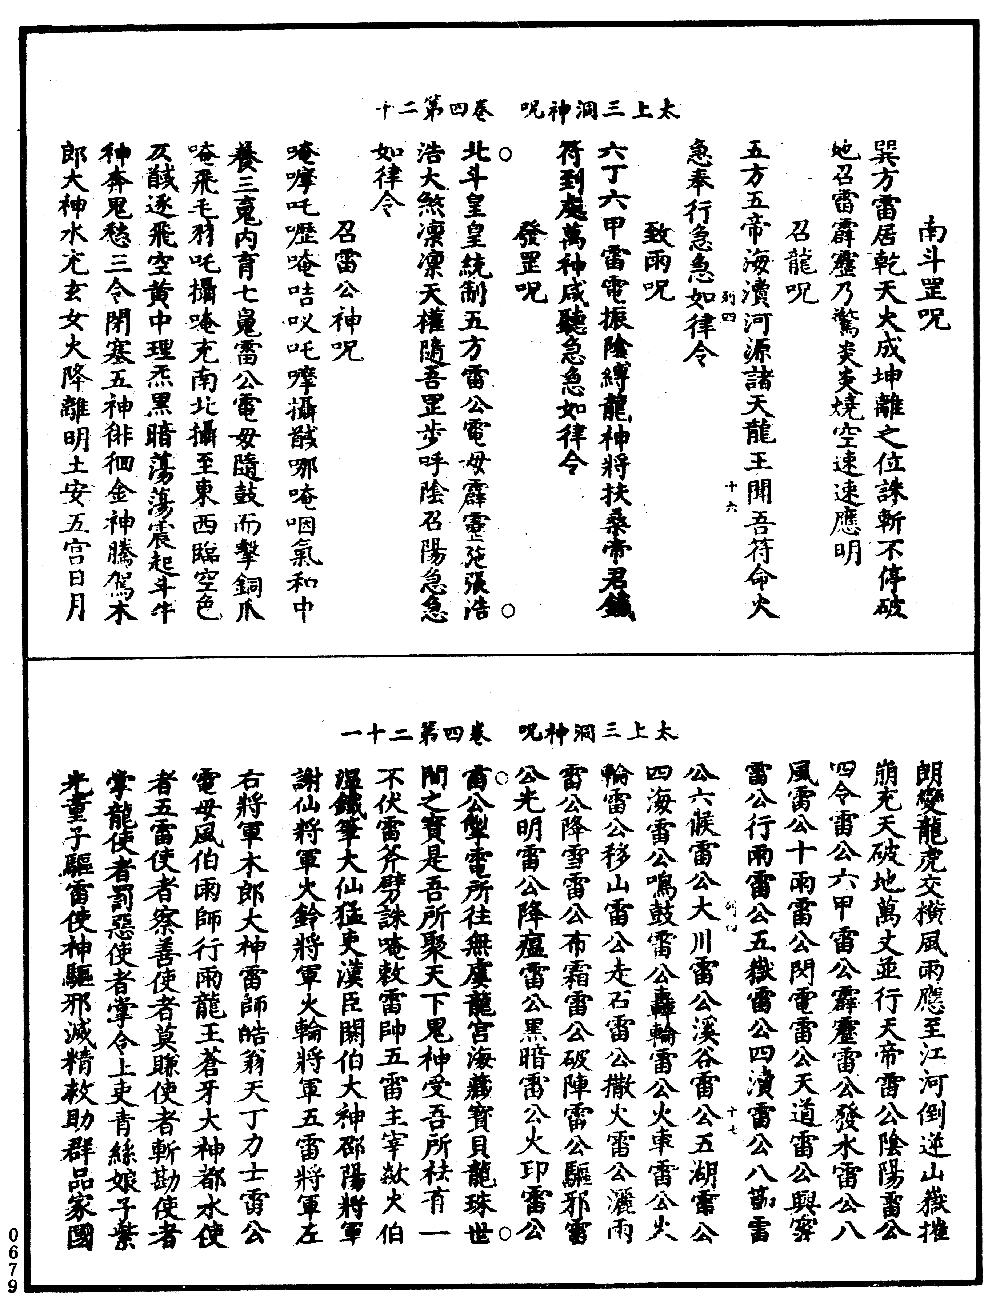 太上三洞神呪　卷四第二十
南斗罡呪
巽方雷居乾天火成坤離之位誅斬不停破
地召雷霹靂乃驚炎炎燒空速速應明
召龍呪
五方五帝海瀆河源諸天龍王聞吾符命火
急奉行急急如律令
致雨呪
六丁六甲雷電振陰縛龍神將扶桑帝君鐵
符到處萬神咸聽急急如律令
發罡呪
北斗皇皇統制五方雷公電母霹靂施張浩
浩大煞凜凜天權隨吾罡步呼陰召陽急急
如律令
召雷公神呪
唵摩吒㘑唵咭㕥吒嚩攝䤋哪唵咽氣和中
養三䰟內育七䰟雷公電母隨鼓而擊銅爪
唵飛毛羽吒攝唵充南北攝至東西臨空色
及䤋逐飛空黄中理炁黑暗蕩蕩震起斗牛
神奔鬼愁三令閉塞五神徘徊金神騰駕木
郎大神水充玄女火降離明土安五宫日月
太上三洞神呪　卷四第二十一
朗變龍虎交橫風雨應至江河倒逆山嶽摧
崩充天破地萬丈並行天帝雷公陰陽雷公
四令雷公六甲雷公霹靂雷公發水雷公八
風雷公十雨雷公閃電雷公天道雷公興雲
雷公行雨雷公五嶽雷公四瀆雷公八節雷
公六候雷公大川雷公溪谷雷公五湖雷公
四海雷公鳴鼓雷公轟輪雷公火車雷公火
輪雷公移山雷公走石雷公撒火雷公灑雨
雷公降雪雷公布霜雷公破陣雷公驅邪雷
公光明雷公降瘟雷公黑暗雷公火印雷公
雷公掣電所往無虞龍宫海藏寶貝龍珠世
間之寶是吾所聚天下鬼神受吾所祛有一
不伏雷斧劈誅唵敕雷帥五雷主宰歘火伯
溫鐵筆大仙猛吏漢臣閼伯大神邵陽將軍
謝仙將軍火鈴將軍火輪將軍五雷將軍左
右將軍木郎大神雷師皓翁天丁力士雷公
電母風伯雨師行雨龍王蒼牙大神都水使
者五雷使者察善使者莫賺使者斬勘使者
掌龍使者罰惡使者掌令上吏青絲娘子紫
光童子驅雷使神驅邪滅精救助群品家國
列四
十六
列四
十七
0679